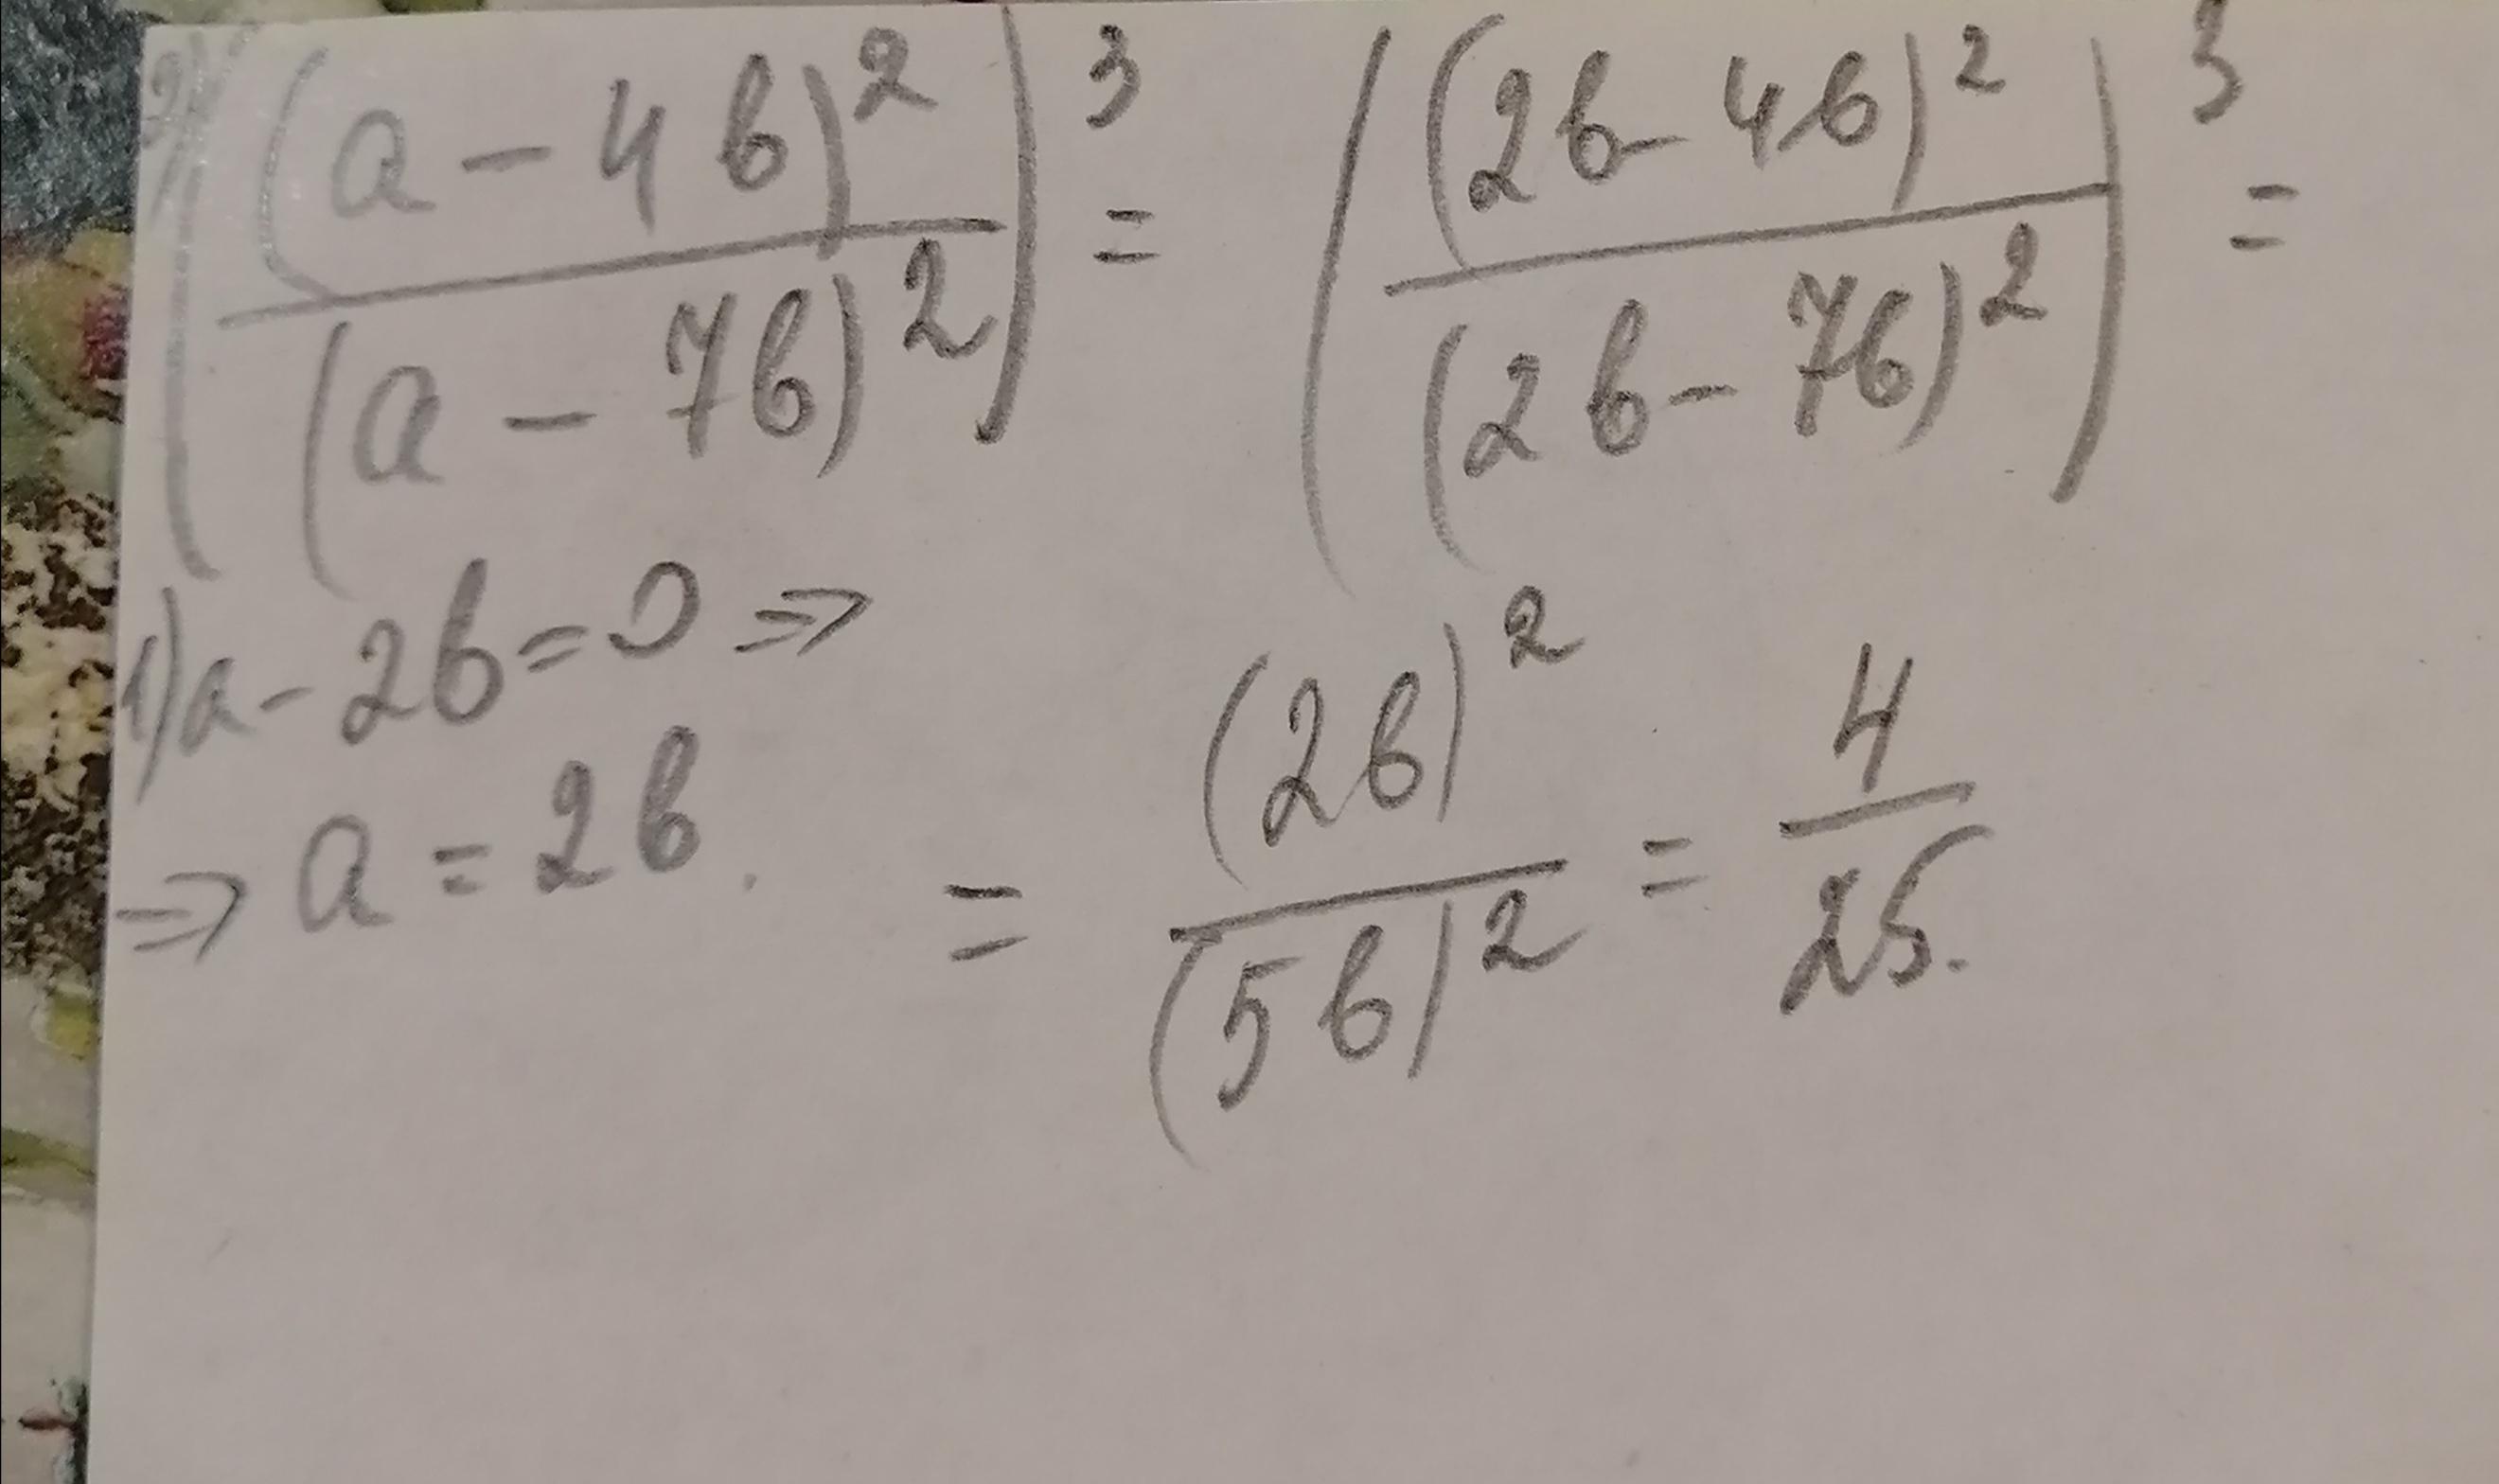 2) ((a - 4b)² / (a - 7b)²)³ = ((2b - 4b)² / (2b - 7b)²)³ =
1) a - 2b = 0 ⇒
⇒ a = 2b.
= (2b)² / (5b)² = 4/25.